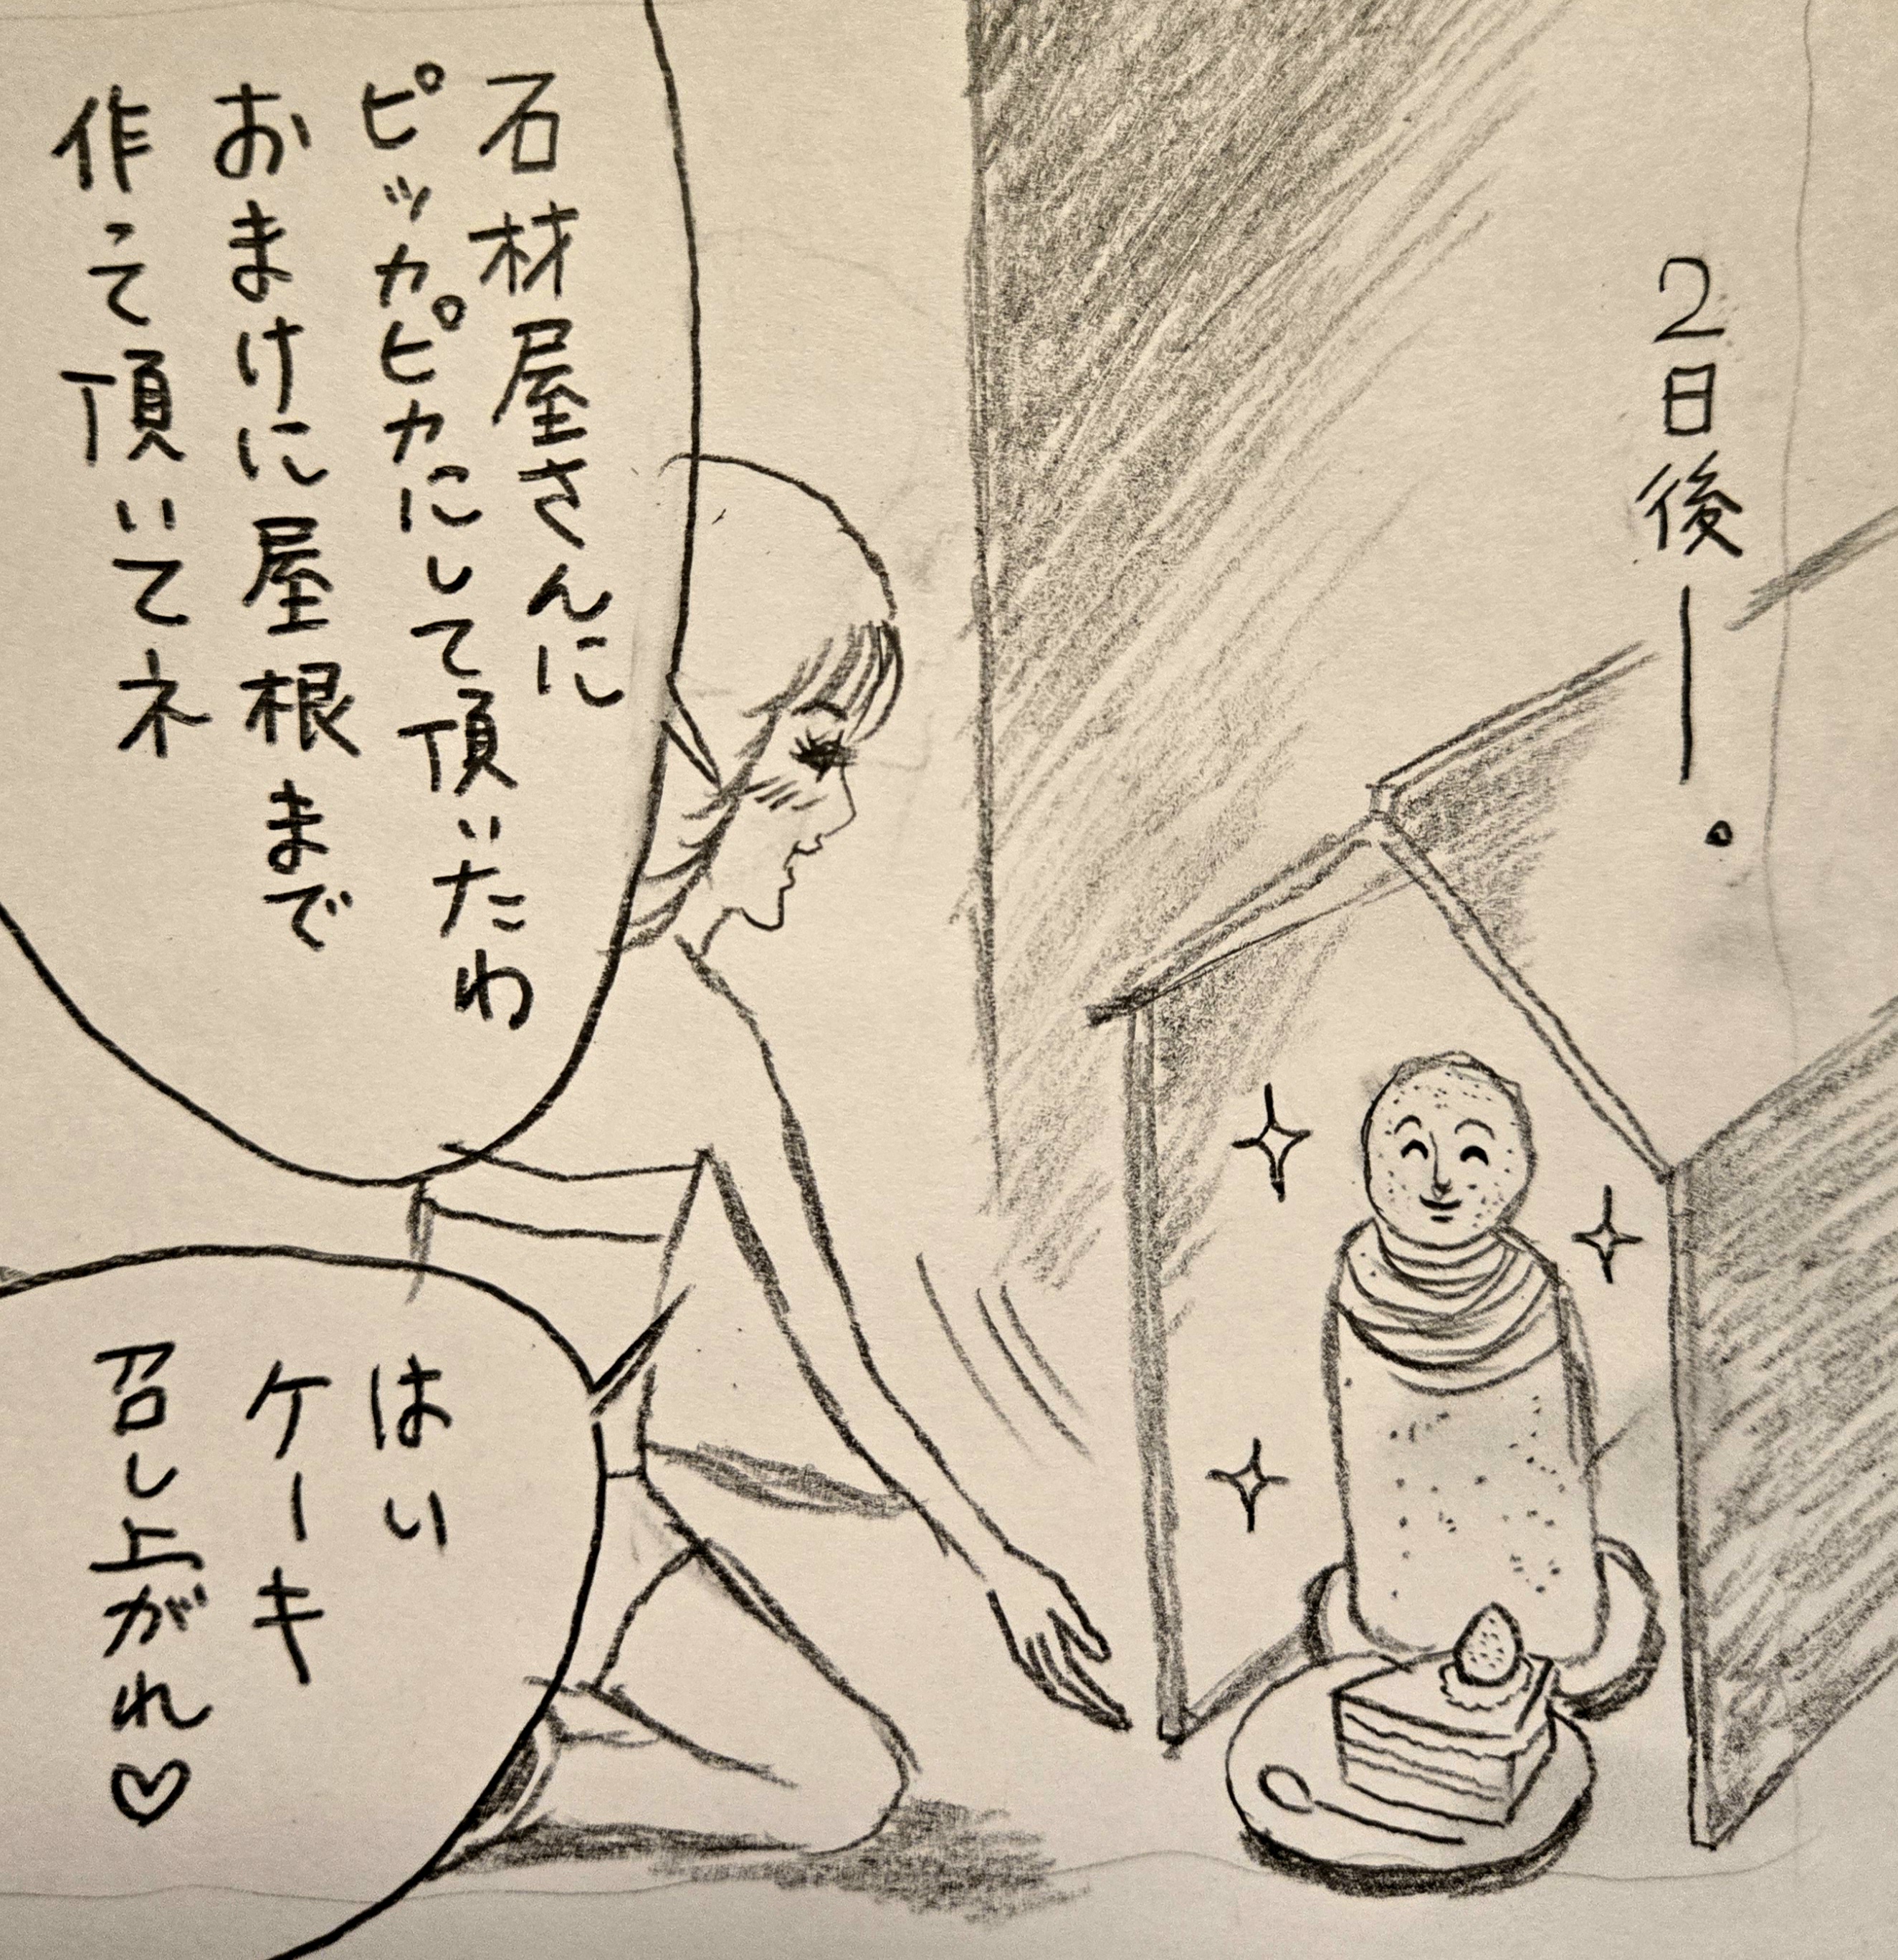 2日後―。
石材屋さんに
ピッカピカにして頂いたわ
おまけに屋根まで
作って頂いてネ
はい
ケーキ
召し上がれ♡